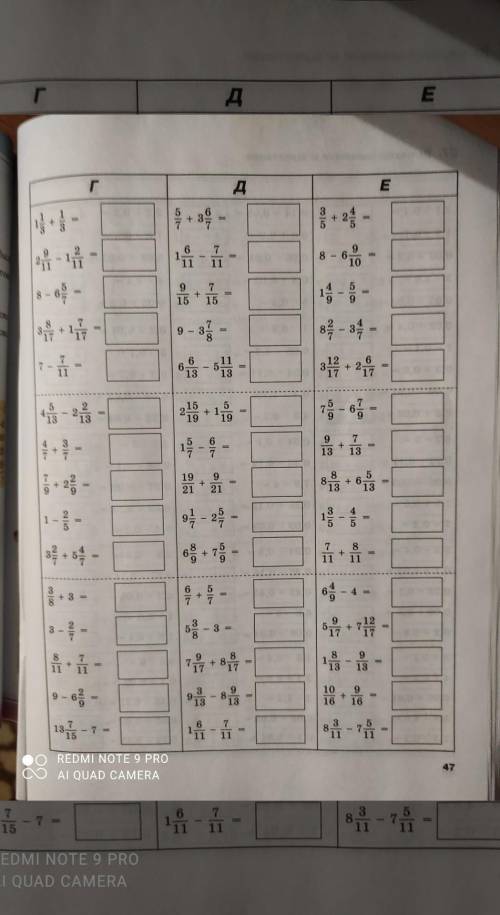 Г Д Е
Г Д Е
1 1/3 + 1/3 = 5/7 + 3 6/7 = 3/5 + 2 4/5 =
2 9/11 - 1 2/11 = 1 6/11 - 7/11 = 8 - 6 9/10 =
8 - 6 5/7 = 9/15 + 7/15 = 1 4/9 - 5/9 =
3 8/17 + 1 7/17 = 9 - 3 7/8 = 8 2/7 - 3 4/7 =
7 - 7/11 = 6 6/13 - 5 11/13 = 3 12/17 + 2 6/17 =
4 5/13 - 2 2/13 = 2 15/19 + 1 5/19 = 7 5/9 - 6 7/9 =
4/7 + 3/7 = 1 5/7 - 6/7 = 9/13 + 7/13 =
7/9 + 2 2/9 = 19/21 + 9/21 = 8 8/13 + 6 5/13 =
1 - 2/5 = 9 1/7 - 2 5/7 = 1 3/5 - 4/5 =
3 2/7 + 5 4/7 = 6 8/9 + 7 5/9 = 7/11 + 8/11 =
3/8 + 3 = 6/7 + 5/7 = 6 4/9 - 4 =
3 - 2/7 = 5 3/8 - 3 = 5 9/17 + 7 12/17 =
8/11 + 7/11 = 7 9/17 + 8 8/17 = 1 8/13 - 9/13 =
9 - 6 2/9 = 9 3/13 - 8 9/13 = 10/16 + 9/16 =
13 7/15 - 7 = 1 6/11 - 7/11 = 8 3/11 - 7 5/11 =
REDMI NOTE 9 PRO
AI QUAD CAMERA
47
7/15 - 7 = 1 6/11 - 7/11 = 8 3/11 - 7 5/11 =
EDMI NOTE 9 PRO
I QUAD CAMERA